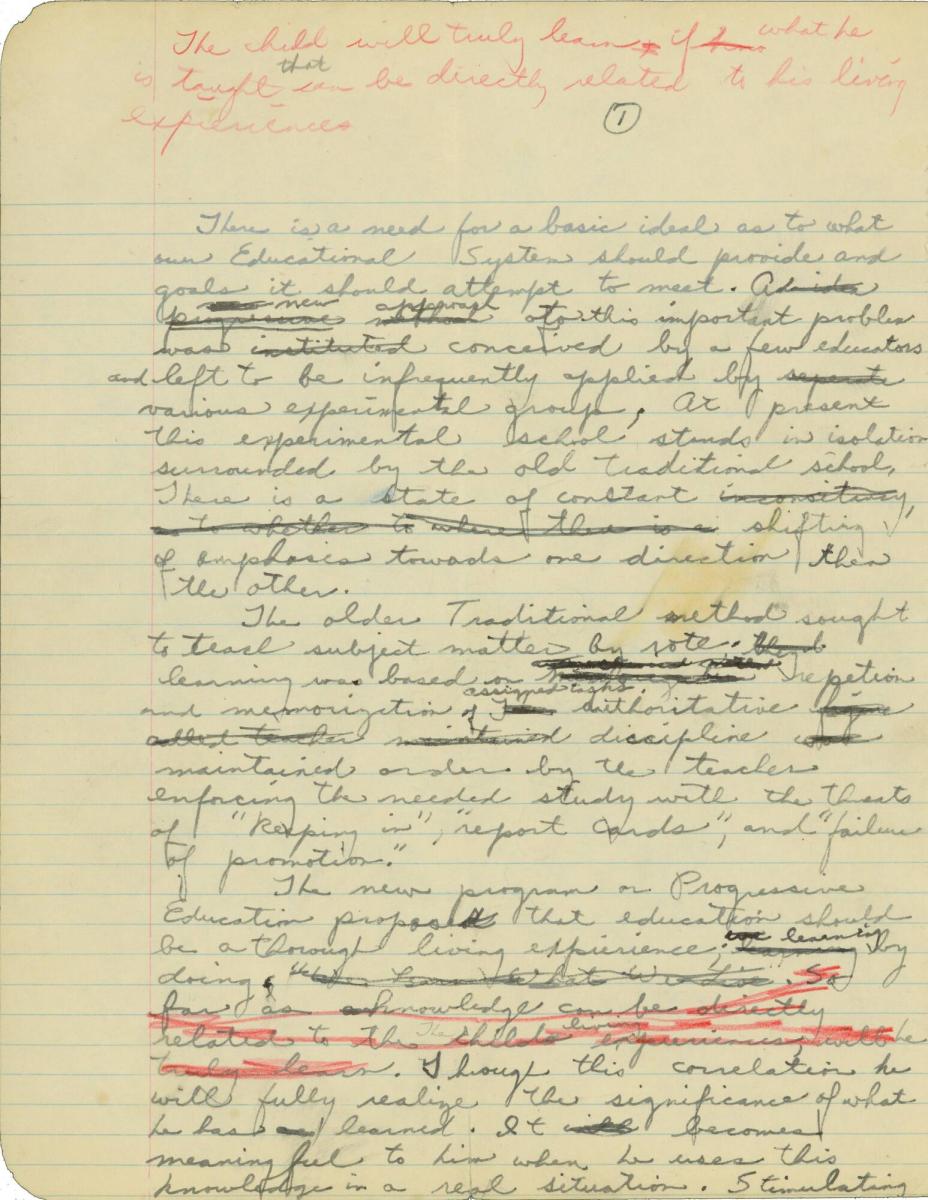 The child will truly learn if what he
that
is taught can be directly related to his living
expieriences
1
There is a need for a basic ideal as to what
our Educational System should provide and
goals it should attempt to meet. Ad idea
new approach
progressive method to this important problem
was instituted conceived by a few educators
and left to be infrequently applied by seperate
various experimental groups. At present
this experimental school stands in isolation
surrounded by the old traditional school,
There is a state of constant
as to whether to where there is a shifting
of emphasis towards one direction then
the other.
The older Traditional method sought
to teach subject matter by rote.
learning was based on repetion
assigned tasks.
and memorization of authoritative figure
called teacher maintained discipline was
maintained order by the teacher
enforcing the needed study with the threats
of "Keeping in", "report cards", and "failure
of promotion."
The new program or Progressive
Education proposed that education should
learning
be a thorough living expierience; learning by
doing, "We Learn What We Live". So
far as knowledge can be directly
The living
related to the childs expieriences, will he
truly learn. Through this correlation he
will fully realize the significance of what
he has learned. It will becomes
meaningful to him when he uses this
knowledge in a real situation. Stimulating